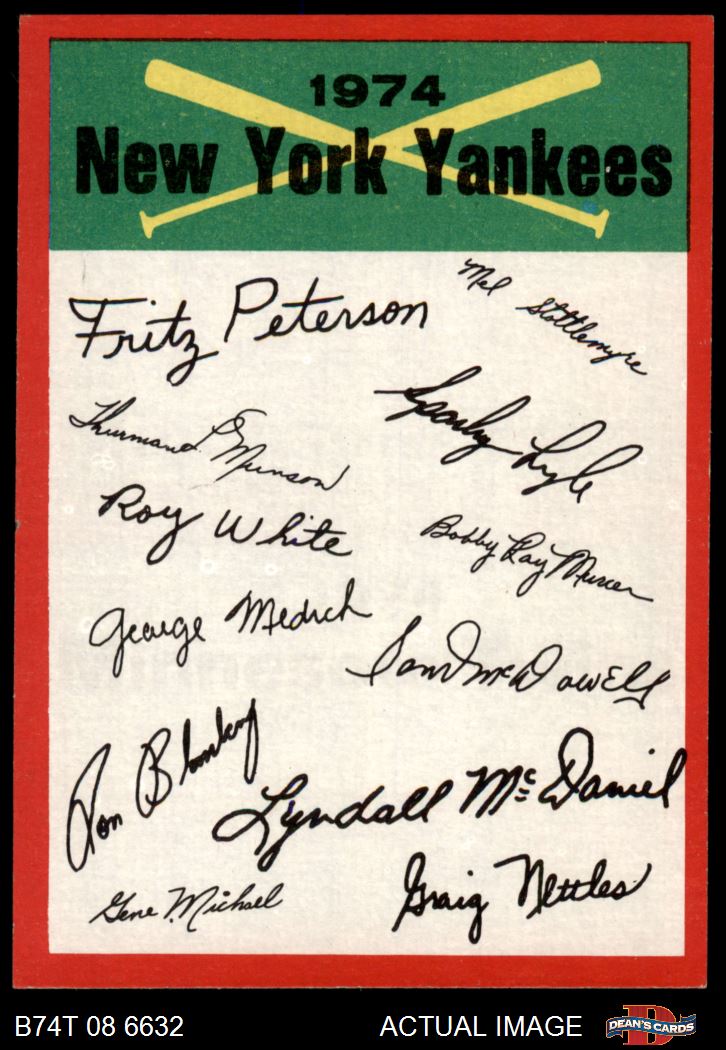 1974
New York Yankees
Fritz Peterson
Mel Stottlemyre
Thurman Munson
Sparky Lyle
Roy White
Bobby Ray Murcer
George Medich
Sam McDowell
Ron Blomberg
Lyndall McDaniel
Gene Michael
Graig Nettles
B74T 08 6632
ACTUAL IMAGE
DEAN'S CARDS